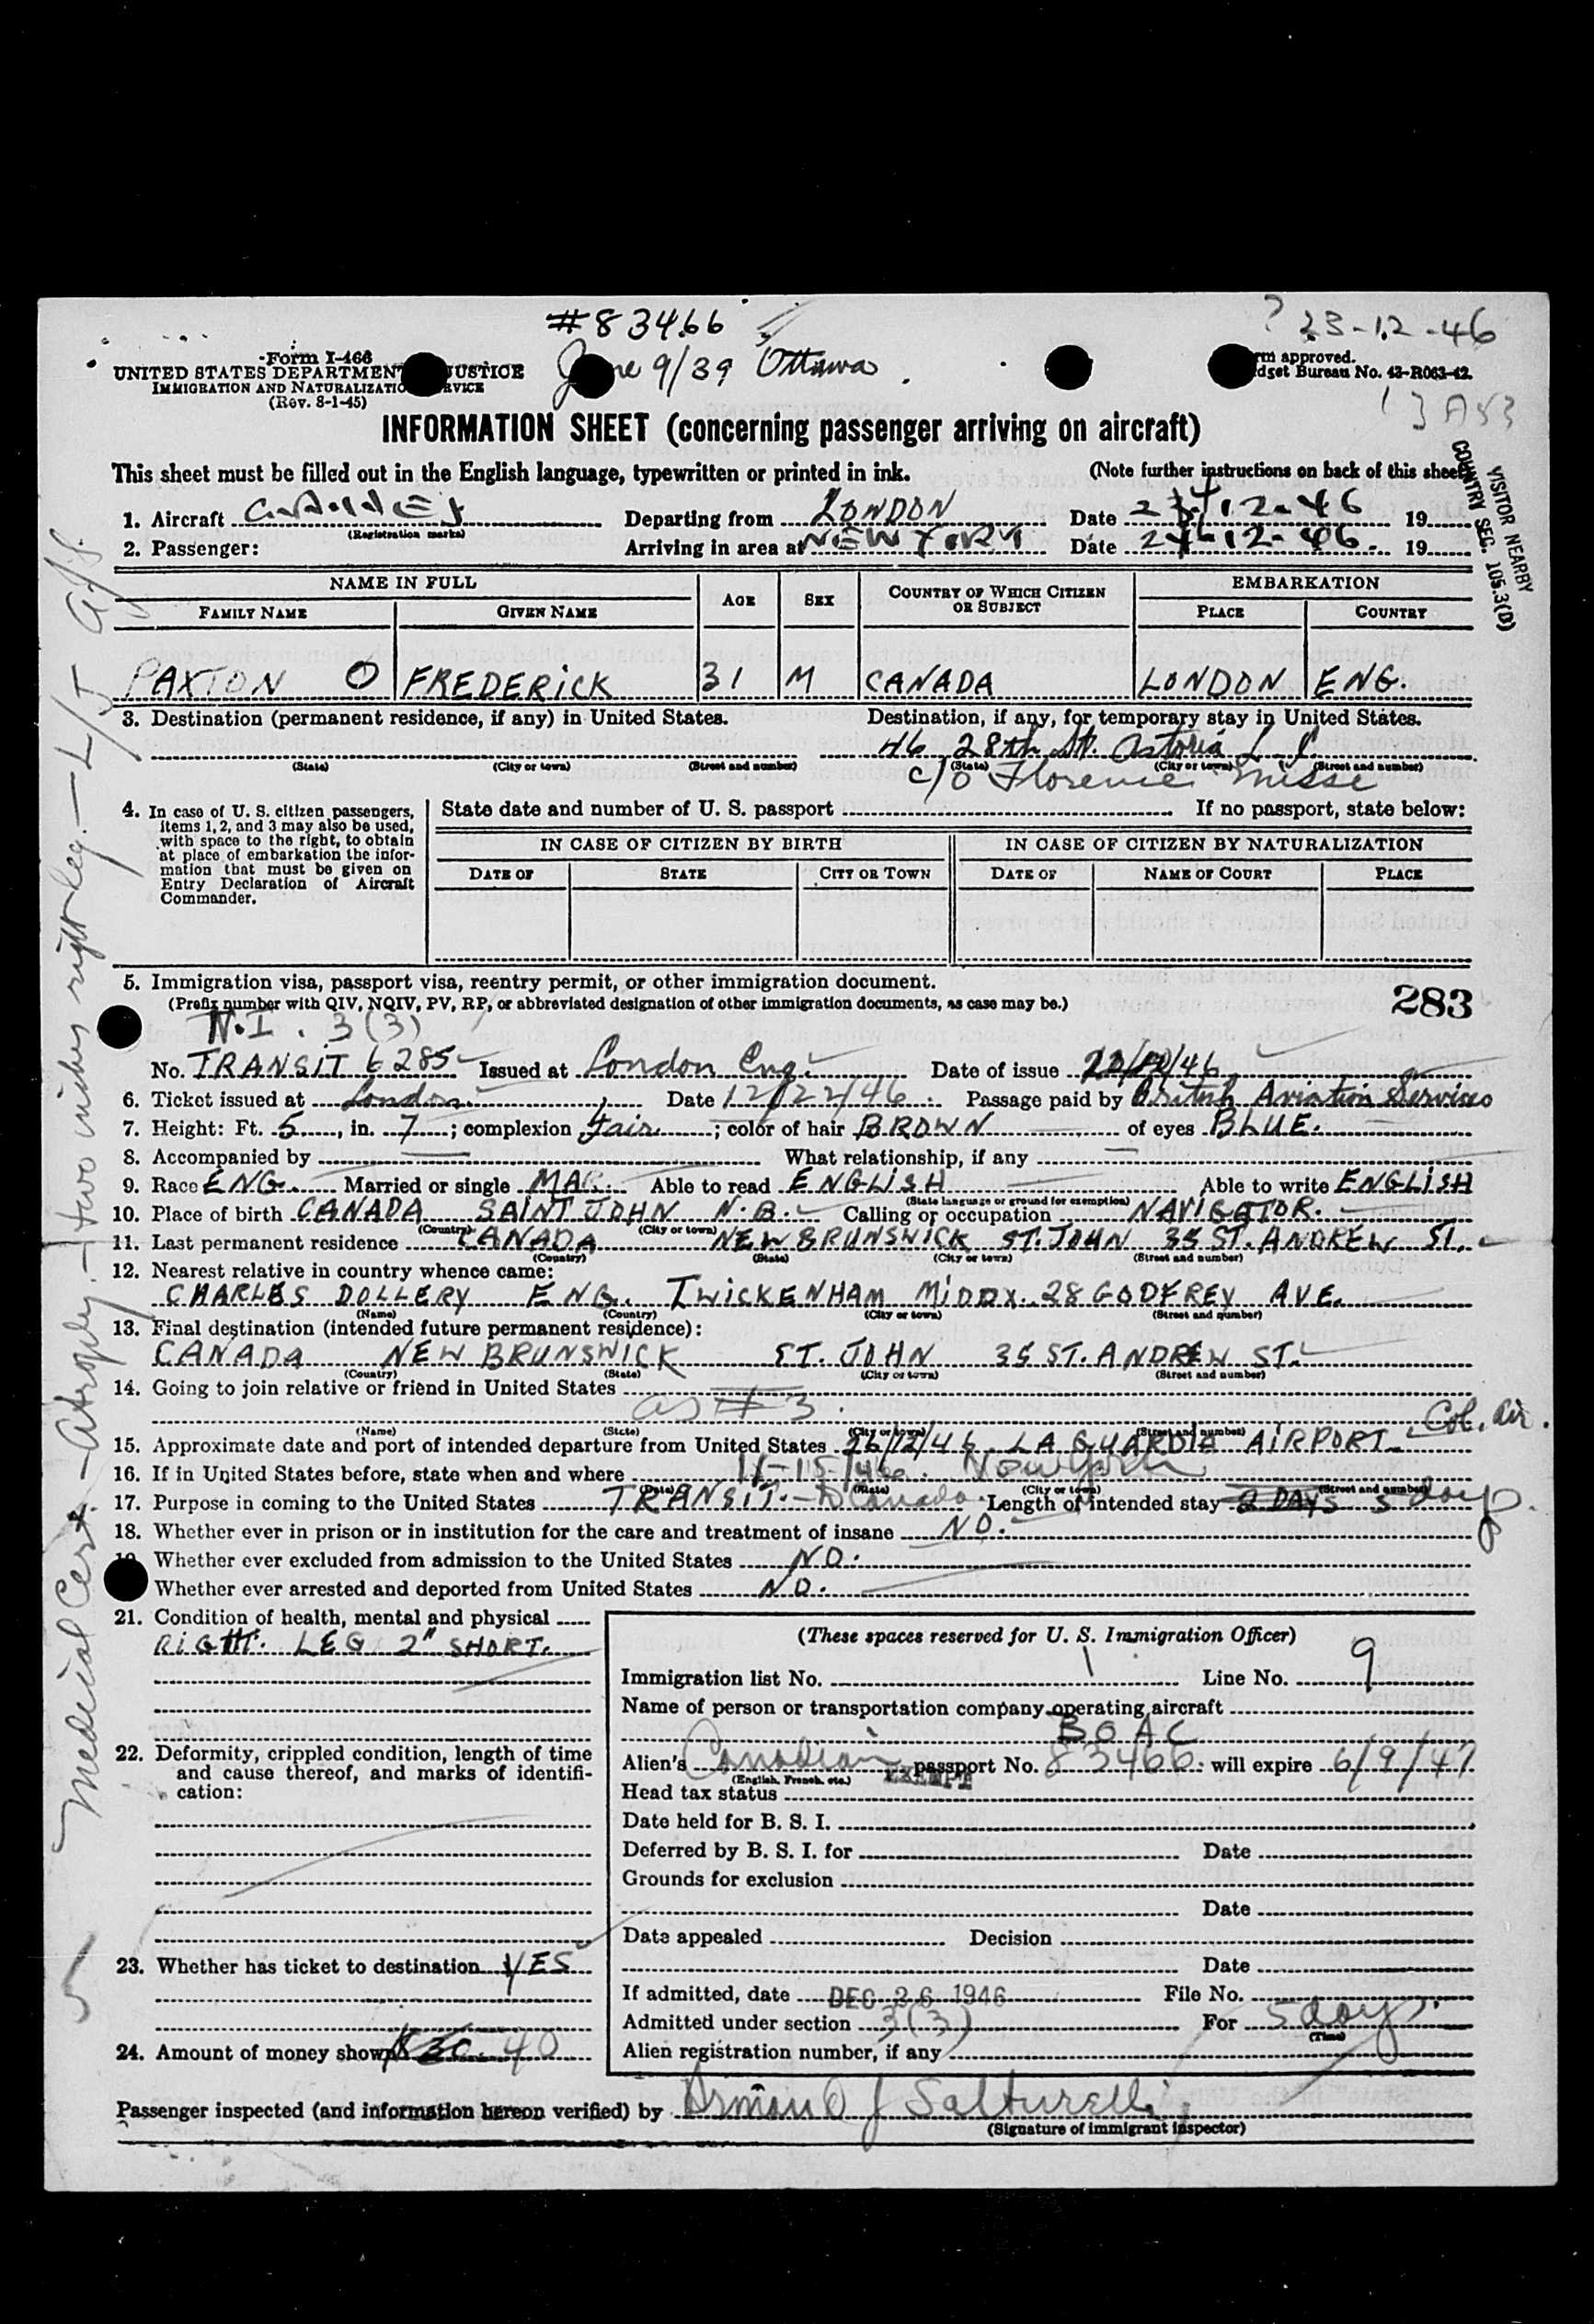 #83466
23-12-46
Form I-466
UNITED STATES DEPARTMENT JUSTICE
IMMIGRATION AND NATURALIZATION SERVICE
(Rev. 8-1-45)
June 9/39 Ottawa
rm approved.
dget Bureau No. 43-R063-42.
INFORMATION SHEET (concerning passenger arriving on aircraft)
This sheet must be filled out in the English language, typewritten or printed in ink. (Note further instructions on back of this sheet
VISITOR NEARBY
COUNTRY SEC. 105.3(D)
1. Aircraft Departing from LONDON Date 12-46 19
(Registration marks)
2. Passenger: Arriving in area at NEW YORK Date 24-12-46. 19
NAME IN FULL AGE SEX COUNTRY OF WHICH CITIZEN OR SUBJECT EMBARKATION
FAMILY NAME GIVEN NAME PLACE COUNTRY
PAXTON O FREDERICK 31 M CANADA LONDON ENG.
3. Destination (permanent residence, if any) in United States. Destination, if any, for temporary stay in United States.
46 28th St. Astoria L I
(State) (City or town) (Street and number) (State) (City or town) (Street and number)
c/o Florence
4. In case of U. S. citizen passengers, items 1, 2, and 3 may also be used, with space to the right, to obtain at place of embarkation the information that must be given on Entry Declaration of Aircraft Commander.
State date and number of U. S. passport If no passport, state below:
IN CASE OF CITIZEN BY BIRTH IN CASE OF CITIZEN BY NATURALIZATION
DATE OF STATE CITY OR TOWN DATE OF NAME OF COURT PLACE
5. Immigration visa, passport visa, reentry permit, or other immigration document.
(Prefix number with QIV, NQIV, PV, RP, or abbreviated designation of other immigration documents, as case may be.)
283
N.I. 3(3)
No. TRANSIT 6285 Issued at London Eng. Date of issue /46
6. Ticket issued at London Date 12/22/46 Passage paid by British Aviation Services
7. Height: Ft. 5, in. 7; complexion Fair; color of hair BROWN of eyes BLUE.
8. Accompanied by — What relationship, if any —
9. Race ENG. Married or single MAR. Able to read ENGLISH Able to write ENGLISH
(State language or ground for exemption)
10. Place of birth CANADA SAINT JOHN N.B. Calling or occupation NAVIGATOR.
(Country) (City or town)
11. Last permanent residence CANADA NEW BRUNSWICK ST. JOHN 35 ST. ANDREW ST.
(Country) (State) (City or town) (Street and number)
12. Nearest relative in country whence came:
CHARLES DOLLERY ENG. TWICKENHAM MIDDX. 28 GODFREY AVE.
(Name) (Country) (City or town) (Street and number)
13. Final destination (intended future permanent residence):
CANADA NEW BRUNSWICK ST. JOHN 35 ST. ANDREW ST.
(Country) (State) (City or town) (Street and number)
14. Going to join relative or friend in United States
as #3.
(Name) (State) (City or town) (Street and number)
15. Approximate date and port of intended departure from United States 26/12/46 LA GUARDIA AIRPORT Col. Air.
16. If in United States before, state when and where 11-15/46. New York
(Date) (State) (City or town) (Street and number)
17. Purpose in coming to the United States TRANSIT.- Canada. Length of intended stay 2 DAYS 5 days.
18. Whether ever in prison or in institution for the care and treatment of insane NO.
Whether ever excluded from admission to the United States NO.
Whether ever arrested and deported from United States NO.
21. Condition of health, mental and physical
RIGHT. LEG 2" SHORT.
22. Deformity, crippled condition, length of time and cause thereof, and marks of identification:
23. Whether has ticket to destination YES
24. Amount of money shown $30. 40
(These spaces reserved for U. S. Immigration Officer)
Immigration list No. 1 Line No. 9
Name of person or transportation company operating aircraft
BOAC
Alien's Canadian passport No. 83466 will expire 6/9/47
(English, French, etc.)
Head tax status EXEMPT
Date held for B. S. I.
Deferred by B. S. I. for Date
Grounds for exclusion
Date
Date appealed Decision
Date
If admitted, date DEC 26 1946 File No.
Admitted under section 3(3) For 5 days.
(Time)
Alien registration number, if any
Passenger inspected (and information hereon verified) by Armand J Salturelli
(Signature of immigrant inspector)
Medical Cert. - Atrophy - two inches right leg. - L/J
5